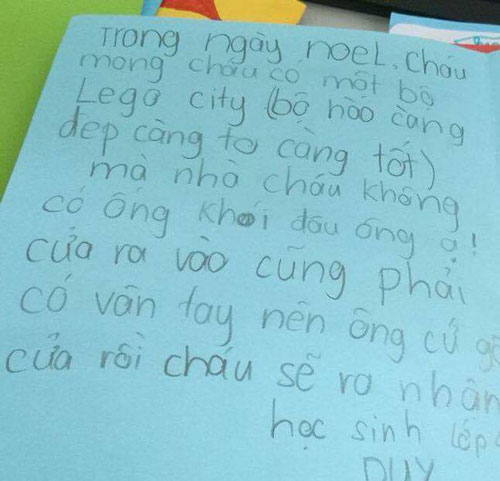 Trong ngày noel, cháu
mong cháu có một bộ
Lego city (bộ nào càng
đẹp càng to càng tốt)
mà nhà cháu không
có ống khói đâu ông ạ!
cửa ra vào cũng phải
có vân tay nên ông cứ gõ
cửa rồi cháu sẽ ra nhận
học sinh lớp
DUY